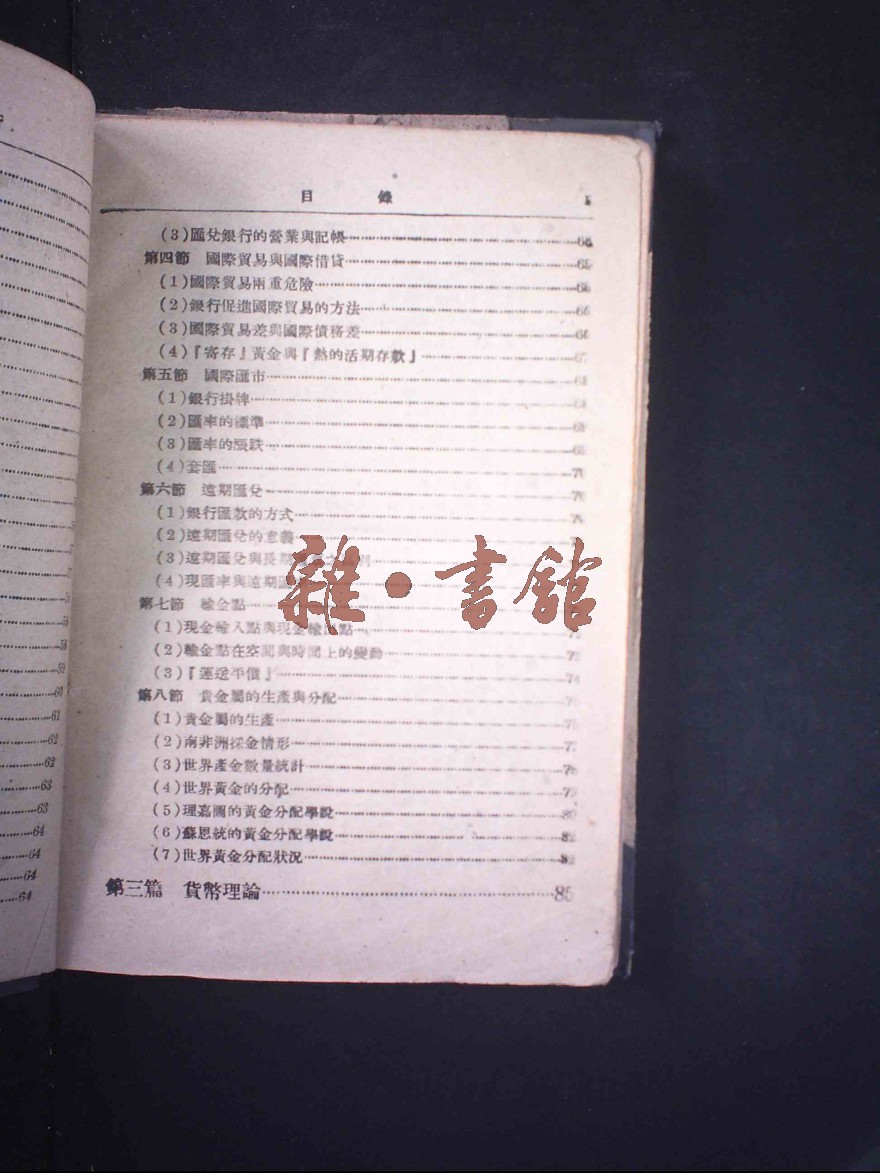 目錄 5
(3)匯兌銀行的營業與記帳
第四節 國際貿易與國際借貸
(1)國際貿易兩重危險
(2)銀行促進國際貿易的方法
(3)國際貿易差與國際債務差
(4)『寄存』黃金與『熱的活期存款』
第五節 國際匯市
(1)銀行掛牌
(2)匯率的標準
(3)匯率的漲跌
(4)套匯
第六節 遠期匯兌
(1)銀行匯款的方式
(2)遠期匯兌的意義
(3)遠期匯兌與長期
(4)現匯率與遠期
雜·書館
第七節 輸金點
(1)現金輸入點與現金輸出點
(2)輸金點在空間與時間上的變動
(3)『運送平價』 74
第八節 貴金屬的生產與分配
(1)貴金屬的生產
(2)南非洲採金情形
(3)世界產金數量統計
(4)世界黃金的分配
(5)理嘉圖的黃金分配學說
(6)蘇恩統的黃金分配學說 82
(7)世界黃金分配狀況 82
第三篇 貨幣理論 85
58
58
59
60
61
62
62
63
63
64
64
64
64